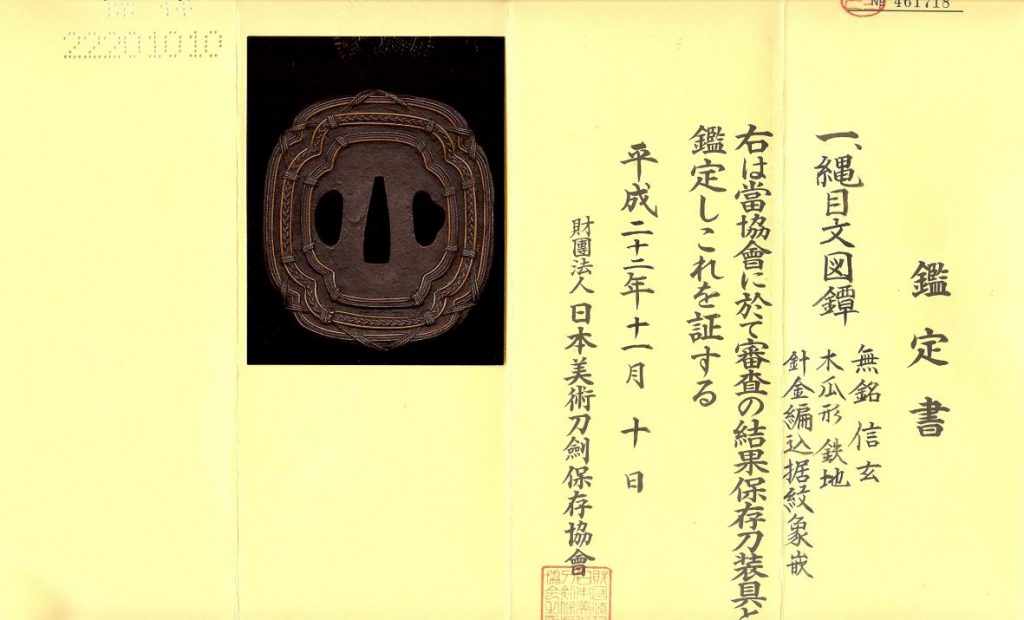 № 461718
鑑定書
一、縄目文図鐔
無銘 信玄
木瓜形 鉄地
針金編込据紋象嵌
右は當協會に於て審査の結果保存刀装具と
鑑定しこれを証する
平成二十二年十一月十日
財團法人日本美術刀劍保存協會
22201010